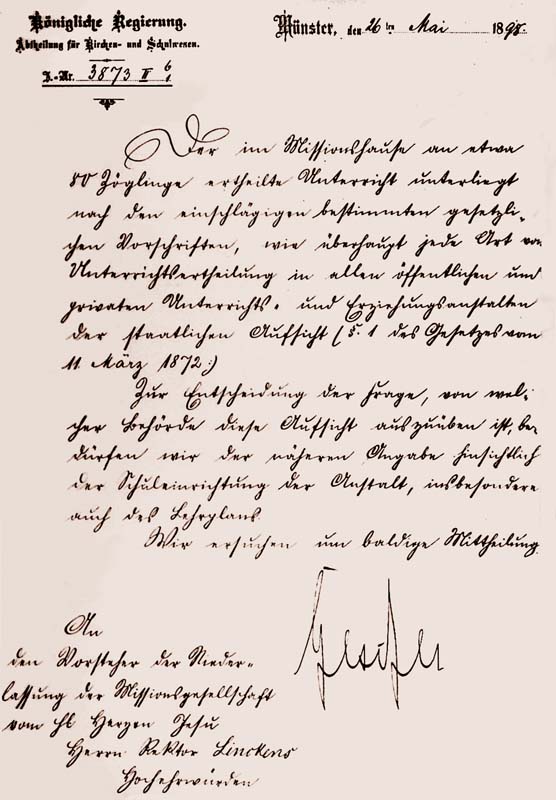 Königliche Regierung.
Abtheilung für Kirchen- und Schulwesen.
J.-Nr. 3873 II 6/1
Münster, den 26ten Mai 1898.
Der im Missionshause an etwa
80 Zöglinge ertheilte Unterricht unterliegt
nach den einschlägigen bestimmten gesetzli-
chen Vorschriften, wie überhaupt jede Art von
Unterrichtsertheilung in allen öffentlichen und
privaten Unterrichts- und Erziehungsanstalten
der staatlichen Aufsicht (§. 1 des Gesetzes vom
11. März 1872.)
Zur Entscheidung der Frage, von wel-
cher Behörde diese Aufsicht auszuüben ist, be-
dürfen wir der näheren Angabe hinsichtlich
der Schuleinrichtung der Anstalt, insbesondere
auch des Lehrplans.
Wir ersuchen um baldige Mittheilung.
An
den Vorsteher der Nieder-
lassung der Missionsgesellschaft
vom hl Herzen Jesu
Herrn Rektor Linckens
Hochehrwürden